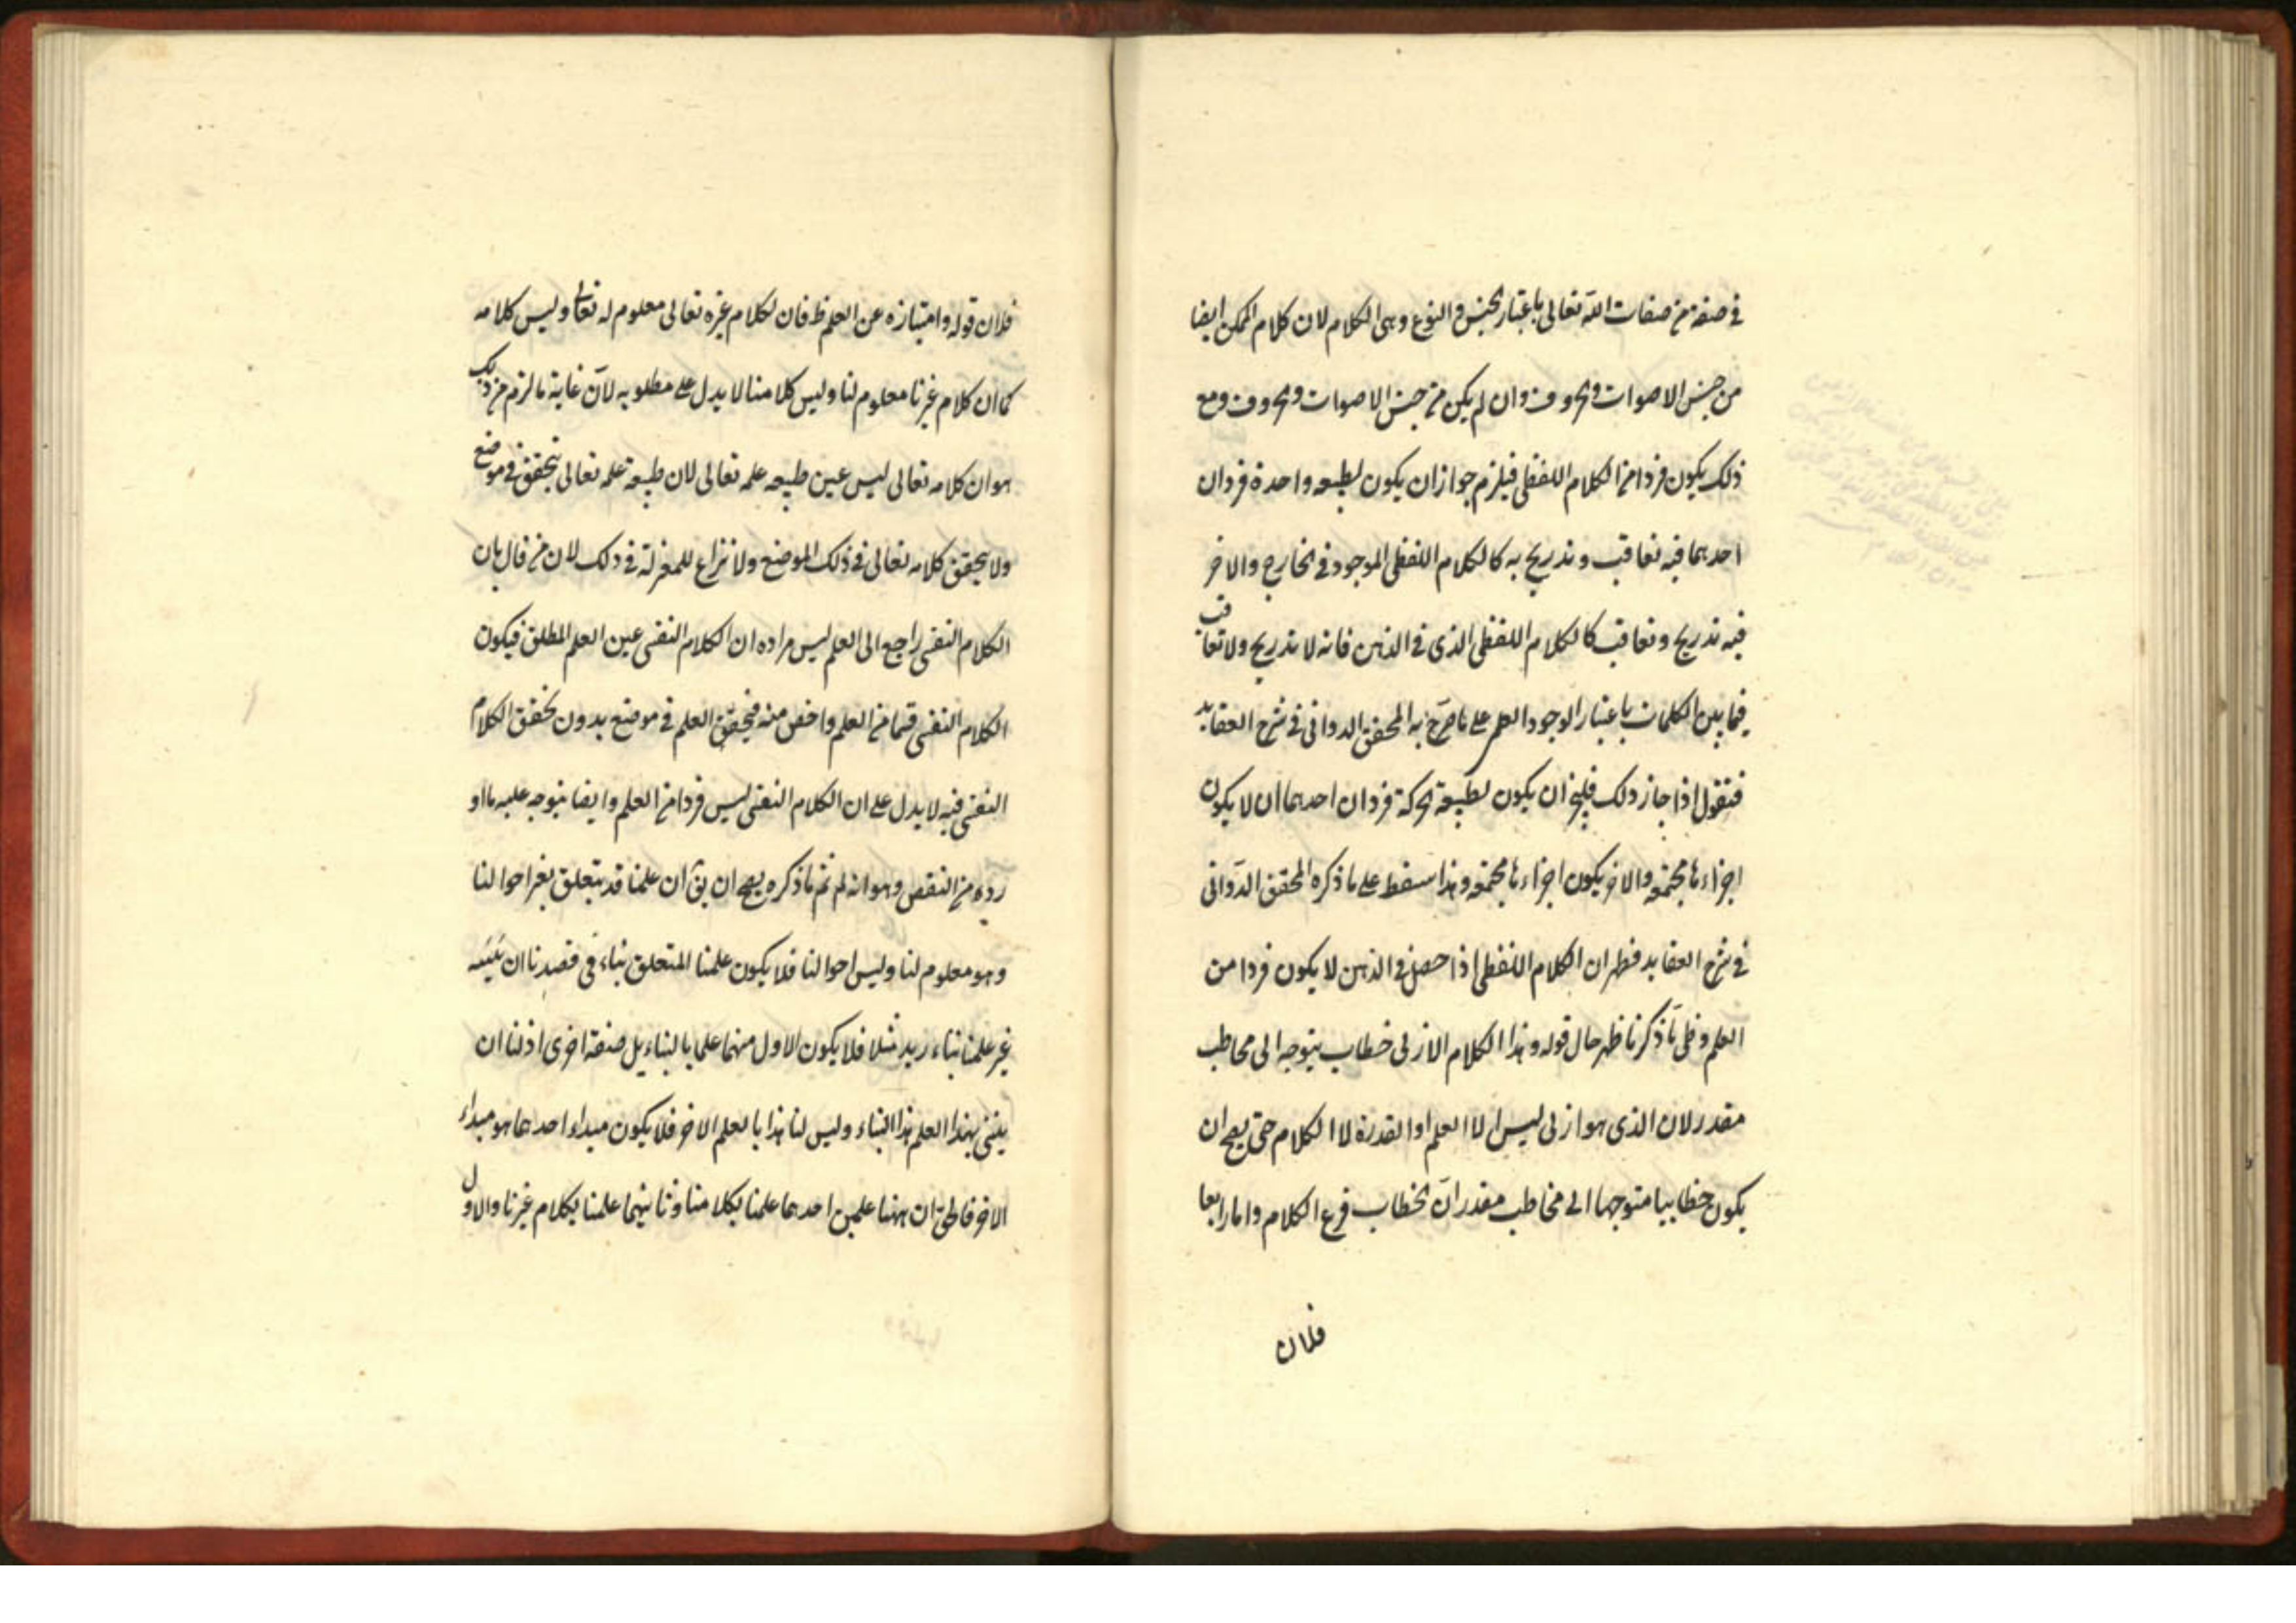 في صفة من صفات الله تعالى باعتبار الجنس والنوع وهى الكلام لان كلام الممكن ايضا
من جنس الاصوات والحروف وان لم يكن من جنس الاصوات والحروف ومع
ذلك يكون فردا من الكلام اللفظى فيلزم جواز ان يكون لطبيعه واحدة فردان
احدهما فيه تعاقب وتدريج به كالكلام اللفظى الموجود في الخارج والاخر
فيه تدريج وتعاقب كالكلام اللفظى الذى في الذهن فانه لا تدريج ولا تعاقب
فيما بين الكلمات باعتبار الوجود العلمى على ما صرّح به المحقق الدوانى في شرح العقايد
فنقول اذا جاز ذلك فليجز ان يكون لطبيعة الحركة فردان احدهما ان لا يكون
اجزاءها مجتمعه والاخر يكون اجزاءها مجتمعه وهذا سفسط على ما ذكره المحقق الدوّانى
في شرح العقايد فظهر ان الكلام اللفظى اذا حصل في الذهن لا يكون فردا من
العلم وعلى ما ذكرنا ظهر حال قوله وهذا الكلام الازلى خطاب يتوجه الى مخاطب
مقدر لان الذى هو ازلى ليس الا العلم او القدرة لا الكلام حتى يصح ان
يكون خطابيا متوجها الى مخاطب مقدر لان الخطاب فرع الكلام واما رابعا
فلان
فلان قوله وامتيازه عن العلم ظ فان لكلام غيره تعالى معلوم له تعالى وليس كلامه
كما ان كلام غيرنا معلوم لنا وليس كلامنا لا يدل على مطلوبه لانّ غاية ما لزم من ذلك
هو ان كلامه تعالى ليس عين طبيعه علمه تعالى لان طبيعة علمه تعالى يتحقق في موضع
ولا يتحقق كلامه تعالى في ذلك الموضع ولا نزاع للمعتزلة في ذلك لان من قال بان
الكلام النفسى راجع الى العلم ليس مراده ان الكلام النفسى عين العلم المطلق فيكون
الكلام النفسى قسما من العلم واخص منه فيتحقق العلم في موضع بدون تحقق الكلام
النفسى فيه لا يدل على ان الكلام النفسى ليس فردا من العلم وايضا يتوجه عليه ما او
رده من النقص وهو انه لم تم ما ذكره يصح ان يق ان علمنا قد يتعلق بغير احوالنا
وهو معلوم لنا وليس احوالنا فلا يكون علمنا المتعلق بناء في قصدنا ان
غير علمنا بناء زيد مثلا فلا يكون الاول منهما علما بالبناء بل صفة اخرى اذ لنا ان
يبنى بهذا العلم هذا البناء وليس لنا هذا بالعلم الاخر فلا يكون مبداء احدهما هو مبداء
الاخر فالحق ان ههنا علمين احدهما علمنا بكلامنا وثانيهما علمنا بكلام غيرنا والاول